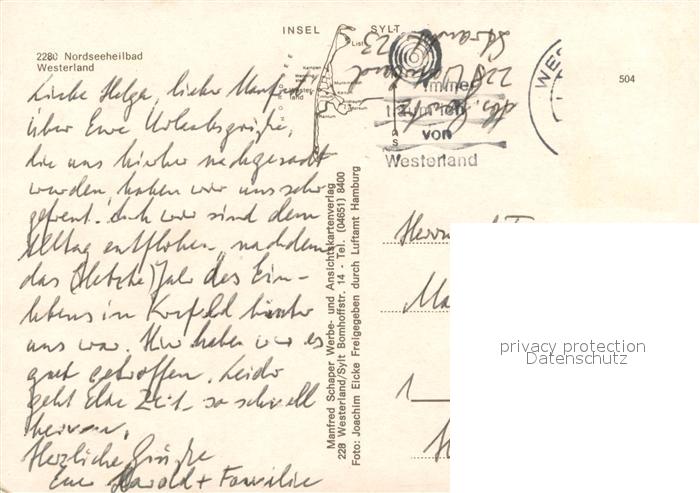 INSEL SYLT
2280 Nordseeheilbad
Westerland
Liebe Helga, lieber Manfred
über Eure Urlaubsgrüße,
die uns hierher nachgesandt
wurden, haben wir uns sehr
gefreut. Auch wir sind dem
Alltag entflohen, nachdem
das (letzte) Jahr des Ein-
lebens in Krefeld hinter
uns war. Hier haben wir es
gut getroffen. Leider
geht die Zeit so schnell
herum.
Herzliche Grüße
Eure Harold + Familie
Manfred Schaper Werbe- und Ansichtskartenverlag
228 Westerland/Sylt Bomhoffstr. 14 - Tel. (04651) 8400
Foto: Joachim Eicke Freigegeben durch Luftamt Hamburg
List
Kampen
228
Strand
23
immer
von
Westerland
WES
504
Herrn
Ma
1
privacy protection
Datenschutz